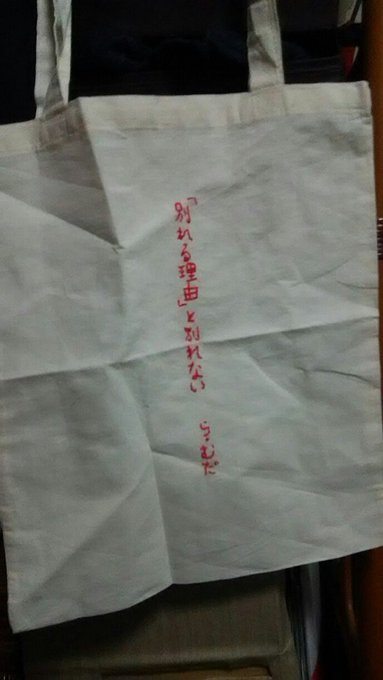 「別れる理由」と別れない　らむだ